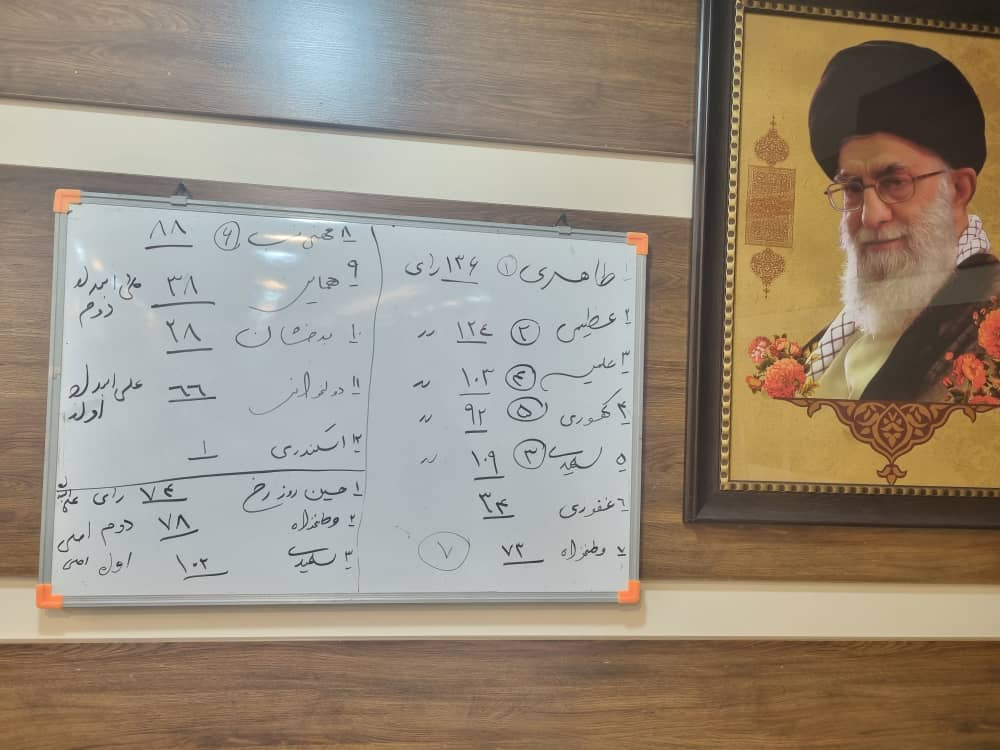 ۱ طاهری ① ۱۳۶ رای
۲ عظیمی ② ۱۲۴ 〃
۳ ④ ۱۰۳ 〃
۴ ⑤ ۹۲ 〃
۵ سعیدی ③ ۱۰۹ 〃
۶ غفوری ۳۴
۷ وطنخواه ۷۳ ⑦
۸ ⑥ ۸۸
۹ همایی ۳۸ علی البدل دوم
۱۰ بدخشان ۲۸
۱۱ ۶۶ علی البدل اول
۱۲ اسکندری ۱
۱ حسین روزرخ ۷۴ رای
۲ وطنخواه ۷۸ دوم اصلی
۳ سعیدی ۱۰۲ اول اصلی